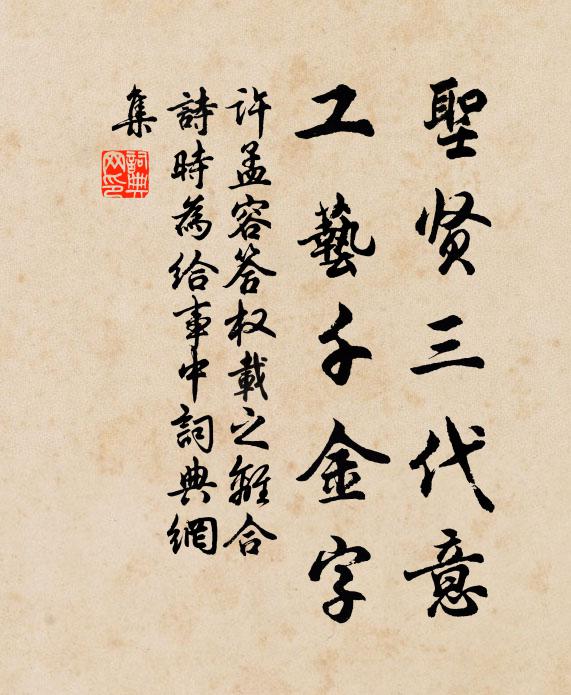 聖贤三代意
工藝千金字
许孟容答权載之離合
詩時為给事中詞典網
集
詞典网印